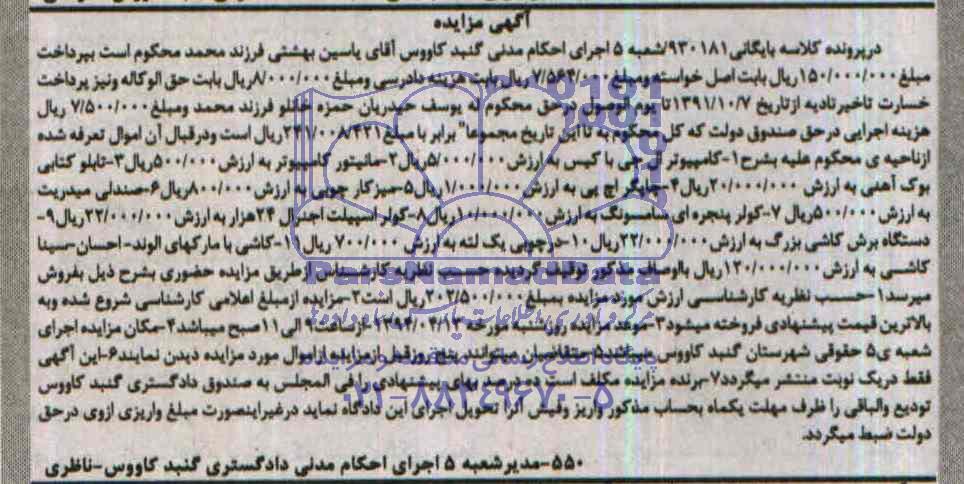 آگهی مزایده
درپرونده کلاسه بایگانی ۹۳۰۱۸۱/شعبه ۵ اجرای احکام مدنی گنبد کاووس آقای یاسین بهشتی فرزند محمد محکوم است بپرداخت
مبلغ ۱۵۰/۰۰۰/۰۰۰ ریال بابت اصل خواسته ومبلغ ۷/۵۶۴/۰۰۰ ریال بابت هزینه دادرسی ومبلغ ۸/۰۰۰/۰۰۰ریال بابت حق الوکاله ونیز پرداخت
خسارت تاخیرتادیه ازتاریخ ۱۳۹۱/۱۰/۷ تا یوم الوصول درحق محکوم له یوسف حیدریان حمزه خانلو فرزند محمد ومبلغ ۷/۵۰۰/۰۰۰ ریال
هزینه اجرایی درحق صندوق دولت که کل محکوم به تا این تاریخ مجموعا" برابر با مبلغ ۲۴۱/۰۰۸/۴۲۱ریال است ودرقبال آن اموال تعرفه شده
ازناحیه ی محکوم علیه بشرح ۱-کامپیوتر ال جی با کیس به ارزش ۵/۰۰۰/۰۰۰ریال ۲-مانیتور کامپیوتر به ارزش ۵۰۰/۰۰۰ریال ۳-تابلو کتابی
بوک آهنی به ارزش ۲۰/۰۰۰/۰۰۰ریال ۴-چاپگر اچ پی به ارزش ۱/۰۰۰/۰۰۰ریال ۵-میزکار چوبی به ارزش ۸۰۰/۰۰۰ریال ۶-صندلی میدریت
به ارزش ۵۰۰/۰۰۰ریال ۷-کولر پنجره ای سامسونگ به ارزش ۱۰/۰۰۰/۰۰۰ریال ۸-کولر اسپیلت اجنرال ۲۴هزار به ارزش ۲۲/۰۰۰/۰۰۰ریال ۹-
دستگاه برش کاشی بزرگ به ارزش ۲۲/۰۰۰/۰۰۰ریال ۱۰-درچوبی یک لته به ارزش ۷۰۰/۰۰۰ ریال ۱۱-کاشی با مارکهای الوند-احسان-سینا
کاشی به ارزش ۱۲۰/۰۰۰/۰۰۰ریال بااوصاف مذکور توقیف گردیده حسب نظریه کارشناس ازطریق مزایده حضوری بشرح ذیل بفروش
میرسد ۱-حسب نظریه کارشناسی ارزش مورد مزایده بمبلغ ۲۰۲/۵۰۰/۰۰۰ریال است ۲-مزایده ازمبلغ اعلامی کارشناسی شروع شده وبه
بالاترین قیمت پیشنهادی فروخته میشود ۳-موعد مزایده روزشنبه مورخه ۱۳۹۴/۰۴/۱۳ ازساعت ۹ الی ۱۱صبح میباشد ۴-مکان مزایده اجرای
شعبه ی ۵ حقوقی شهرستان گنبد کاووس میباشد ۵-متقاضیان میتوانند پنج روز قبل ازمزایده ازاموال مورد مزایده دیدن نمایند ۶-این آگهی
فقط دریک نوبت منتشر میگردد ۷-برنده مزایده مکلف است ده درصد بهای پیشنهادی را فی المجلس به صندوق دادگستری گنبد کاووس
تودیع والباقی را ظرف مهلت یکماه بحساب مذکور واریز وفیش آنرا تحویل اجرای این دادگاه نماید درغیراینصورت مبلغ واریزی ازوی درحق
دولت ضبط میگردد.
۵۵۰-مدیرشعبه ۵ اجرای احکام مدنی دادگستری گنبد کاووس-ناظری
ParsNamadData
۰۲۱-۸۸۳۴۹۶۷۰-۵